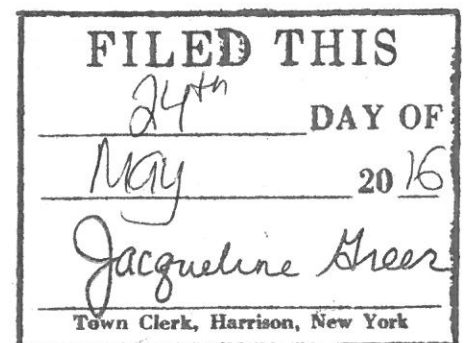 FILED THIS
24th DAY OF
May 20 16
Jacqueline Greer
Town Clerk, Harrison, New York